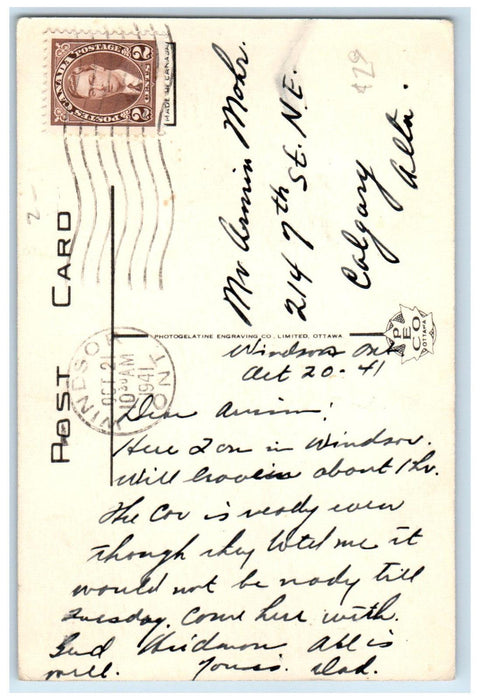 CANADA POSTAGE
POSTES
2 CENTS 2
MADE IN CANADA
429
Mr Armin Mohr.
214 7th St. N.E.
Calgary
Alta.
POST CARD
PHOTOGELATINE ENGRAVING CO., LIMITED, OTTAWA
PECO
OTTAWA
WINDSOR
OCT 21
10 30 AM
1941
ONT
2-
Windsor Ont
Oct 20-41
Dear Armin!
Here I am in Windsor.
Will leave in about 1 hr.
The Car is ready even
though they told me it
would not be ready till
Tuesday. Come here with
All is
well. Yours. Dad.